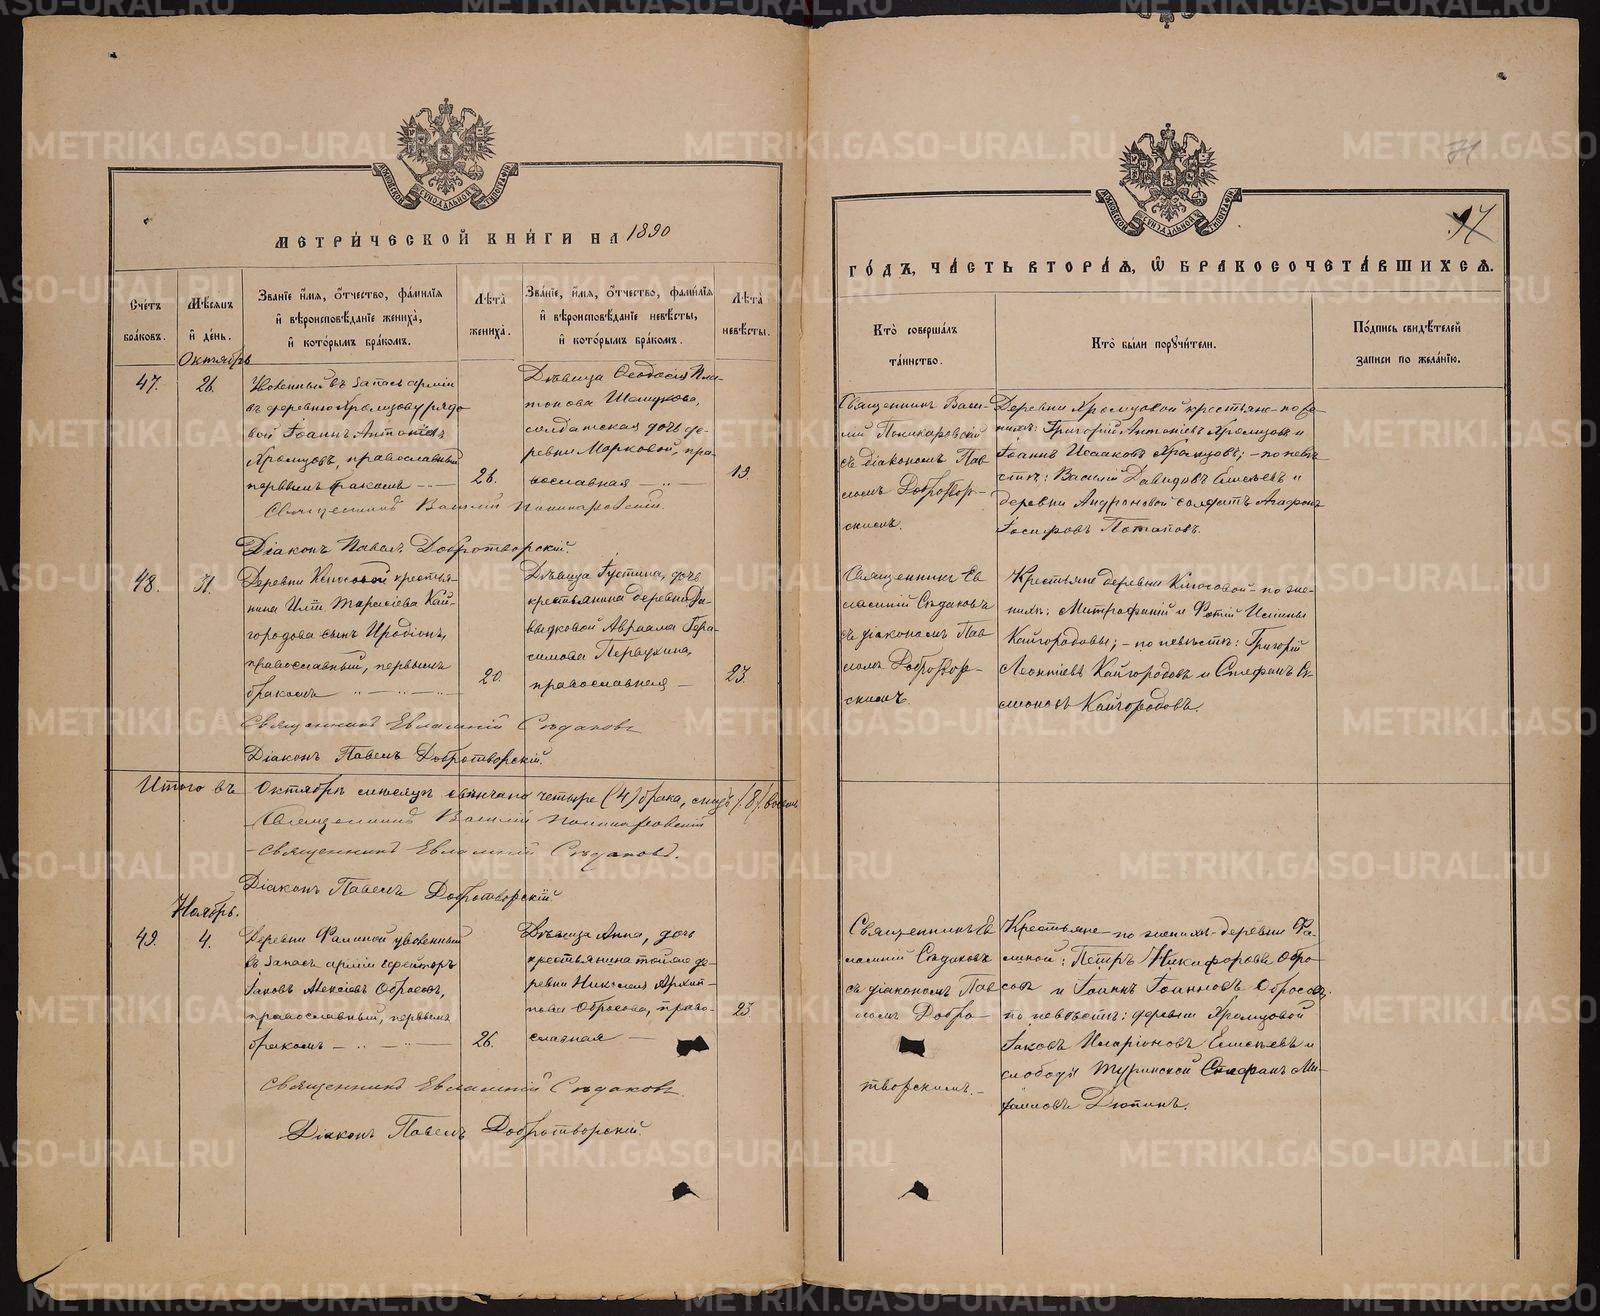 МЕТРИ́ЧЕСКОЙ КНИ́ГИ НА 1890
Сче́тъ бра́ковъ.
Мѣ́сяцъ и де́нь.
Зва́ніе и́мя, о́тчество, фами́лія и вѣроисповѣ́даніе жениха̀, и кото́рымъ бра́комъ.
Лѣ́та̀ жениха̀.
Зва́ніе, и́мя, о́тчество, фами́лія и вѣроисповѣ́даніе невѣ́сты, и кото́рымъ бра́комъ.
Лѣ́та̀ невѣ́сты.
Октябрь
47.
26.
въ запасъ арміи
въ деревню Храмцову рядо
вой Іоаннъ Антоніевъ
Храмцовъ, православный
первымъ бракомъ
26.
Дѣвица Ѳеодосія Пла-
тонова
солдатская дочь де-
ревни Марковой, пра-
вославная
19.
Священникъ Василій Поникаровскій.
Діаконъ Павелъ Добротворскій.
48.
31.
Деревни Клюсовой крестья-
нина Тарасіева Кай-
городова сынъ Иродіонъ,
православный, первымъ
бракомъ
20.
Дѣвица Іустина, дочь
крестьянина деревни Да-
выдковой Авраама Гера-
симова Первухина,
православная
23.
Священникъ Евлампій Сѣдаковъ
Діаконъ Павелъ Добротворскій.
Итого въ Октябрѣ мѣсяцѣ вѣнчано четыре (4) брака, лицъ /8/ восемь
Священникъ Василій Поникаровскій
Священникъ Евлампій Сѣдаковъ.
Діаконъ Павелъ Добротворскій.
Ноябрь.
49.
4.
Деревни Фалиной уволенный
въ запасъ арміи ефрейторъ
Іаковъ Алексіевъ Обросовъ,
православный, первымъ
бракомъ
26.
Дѣвица Анна, дочь
крестьянина той же де-
ревни Николая Архип-
пова Обросова, право-
славная
23.
Священникъ Евлампій Сѣдаковъ.
Діаконъ Павелъ Добротворскій.
71
97
ГО́ДЪ, ЧА́СТЬ ВТОРА́Я, Ѡ БРАКОСОЧЕТА́ВШИХСЯ.
Кто̀ соверша́лъ та́инство.
Кто̀ бы́ли поручи́тели.
По́дпись свидѣ́телей записи по жела́нію.
Священникъ Васи-
лій Поникаровскій
съ діакономъ Пав
ломъ Добротвор-
скимъ.
Деревни Храмцовой крестьяне по же-
нихѣ: Григорій Антоніевъ Храмцовъ и
Іоаннъ Исааковъ Храмцовъ; - по невѣ
стѣ: Василій Давидовъ Елисѣевъ и
деревни Андроновой солдатъ Агафонъ
Іосифовъ Потаповъ.
Священникъ Ев
лампій Сѣдаковъ
съ діакономъ Пав
ломъ Добротвор-
скимъ.
Крестьяне деревни Клюсовой - по же-
нихѣ: Митрофаній и Фотій
Кайгородовы; - по невѣстѣ: Григорій
Леонтіевъ Кайгородовъ и Стефанъ Си-
меоновъ Кайгородовъ.
Священникъ Ев
лампій Сѣдаковъ
съ діакономъ Пав
ломъ Добро
творскимъ.
Крестьяне по женихѣ - деревни Фа-
линой: Петръ Никифоровъ Обро
совъ и Іоаннъ Іоанновъ Обросовъ,
по невѣстѣ: деревни Храмцовой
Іаковъ Иларіоновъ Елисѣевъ и
слободы Туринской Стефанъ Ми-
хаиловъ Дюпинъ.
METRIKI.GASO-URAL.RU